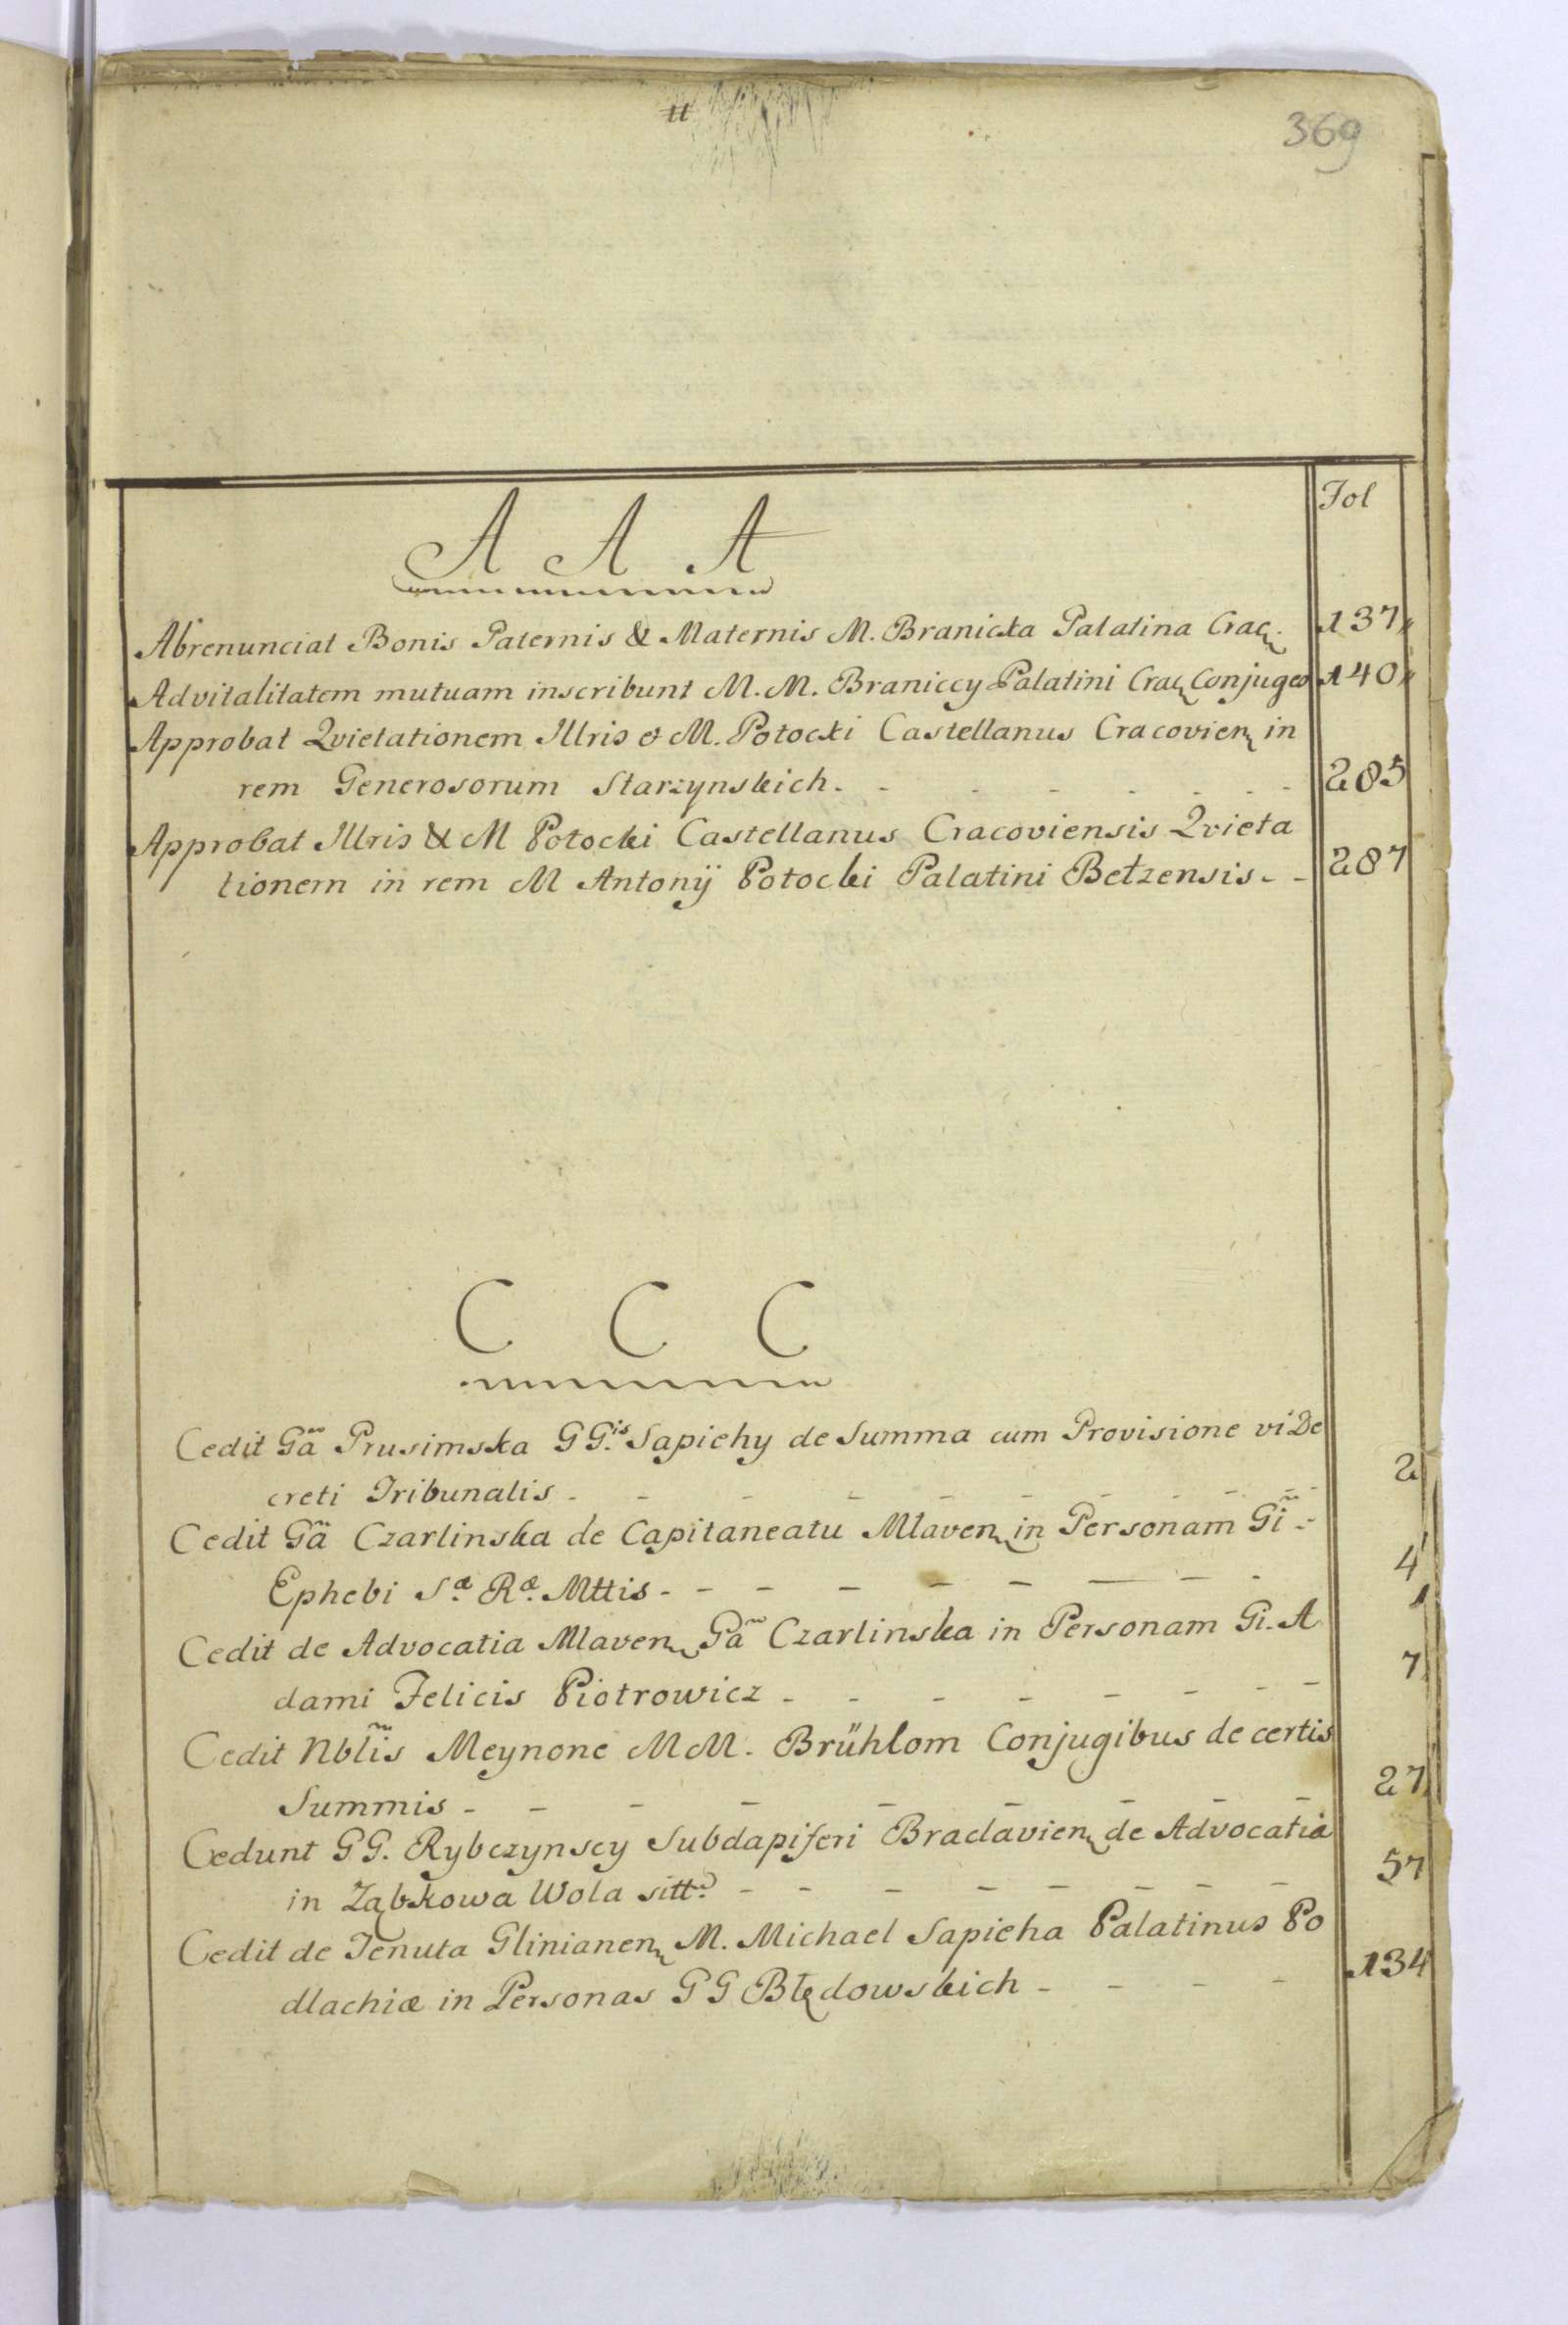 tt
369
Fol
A A A
Abrenunciat Bonis Paternis & Maternis M. Branicka Palatina Crac. 137
Advitalitatem mutuam inscribunt M. M. Braniccy Palatini Crac Conjuges 140
Approbat Qvietationem Illris & M. Potocki Castellanus Cracovien in
rem Generosorum Starzynskich. - - - - - - 285
Approbat Illris & M Potocki Castellanus Cracoviensis Qvieta
tionem in rem M Antonij Potocki Palatini Bełzensis - - 287
C C C
Cedit Gã Prusimska GG.is Sapiehy de Summa cum Provisione vi De
creti Tribunalis - - - - - - - - - 2
Cedit Gã Czarlinska de Capitaneatu Mlaven in Personam Gi -
Ephebi S.æ R.æ Mttis - - - - - - - - 4
Cedit de Advocatia Mlaven Gã Czarlinska in Personam Gi. A
dami Felicis Piotrowicz - - - - - - - - 7
Cedit Nblis Meynone MM. Brühlom Conjugibus de certis
Summis - - - - - - - - 27
Cedunt GG. Rybczynscy Subdapiferi Braclavien de Advocatia
in Ząbkowa Wola sitta - - - - - - - - 57
Cedit de Tenuta Glinianen M. Michael Sapieha Palatinus Po
dlachiæ in Personas GG Błędowskich - - - - 134